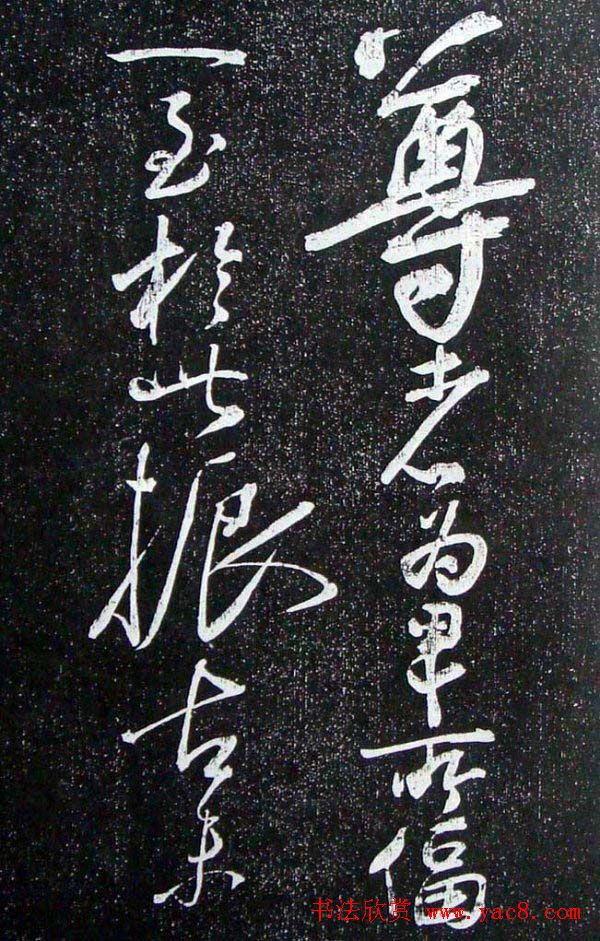 尊者為卑所偪
一至於此振古未
书法欣赏 www.yac8.com